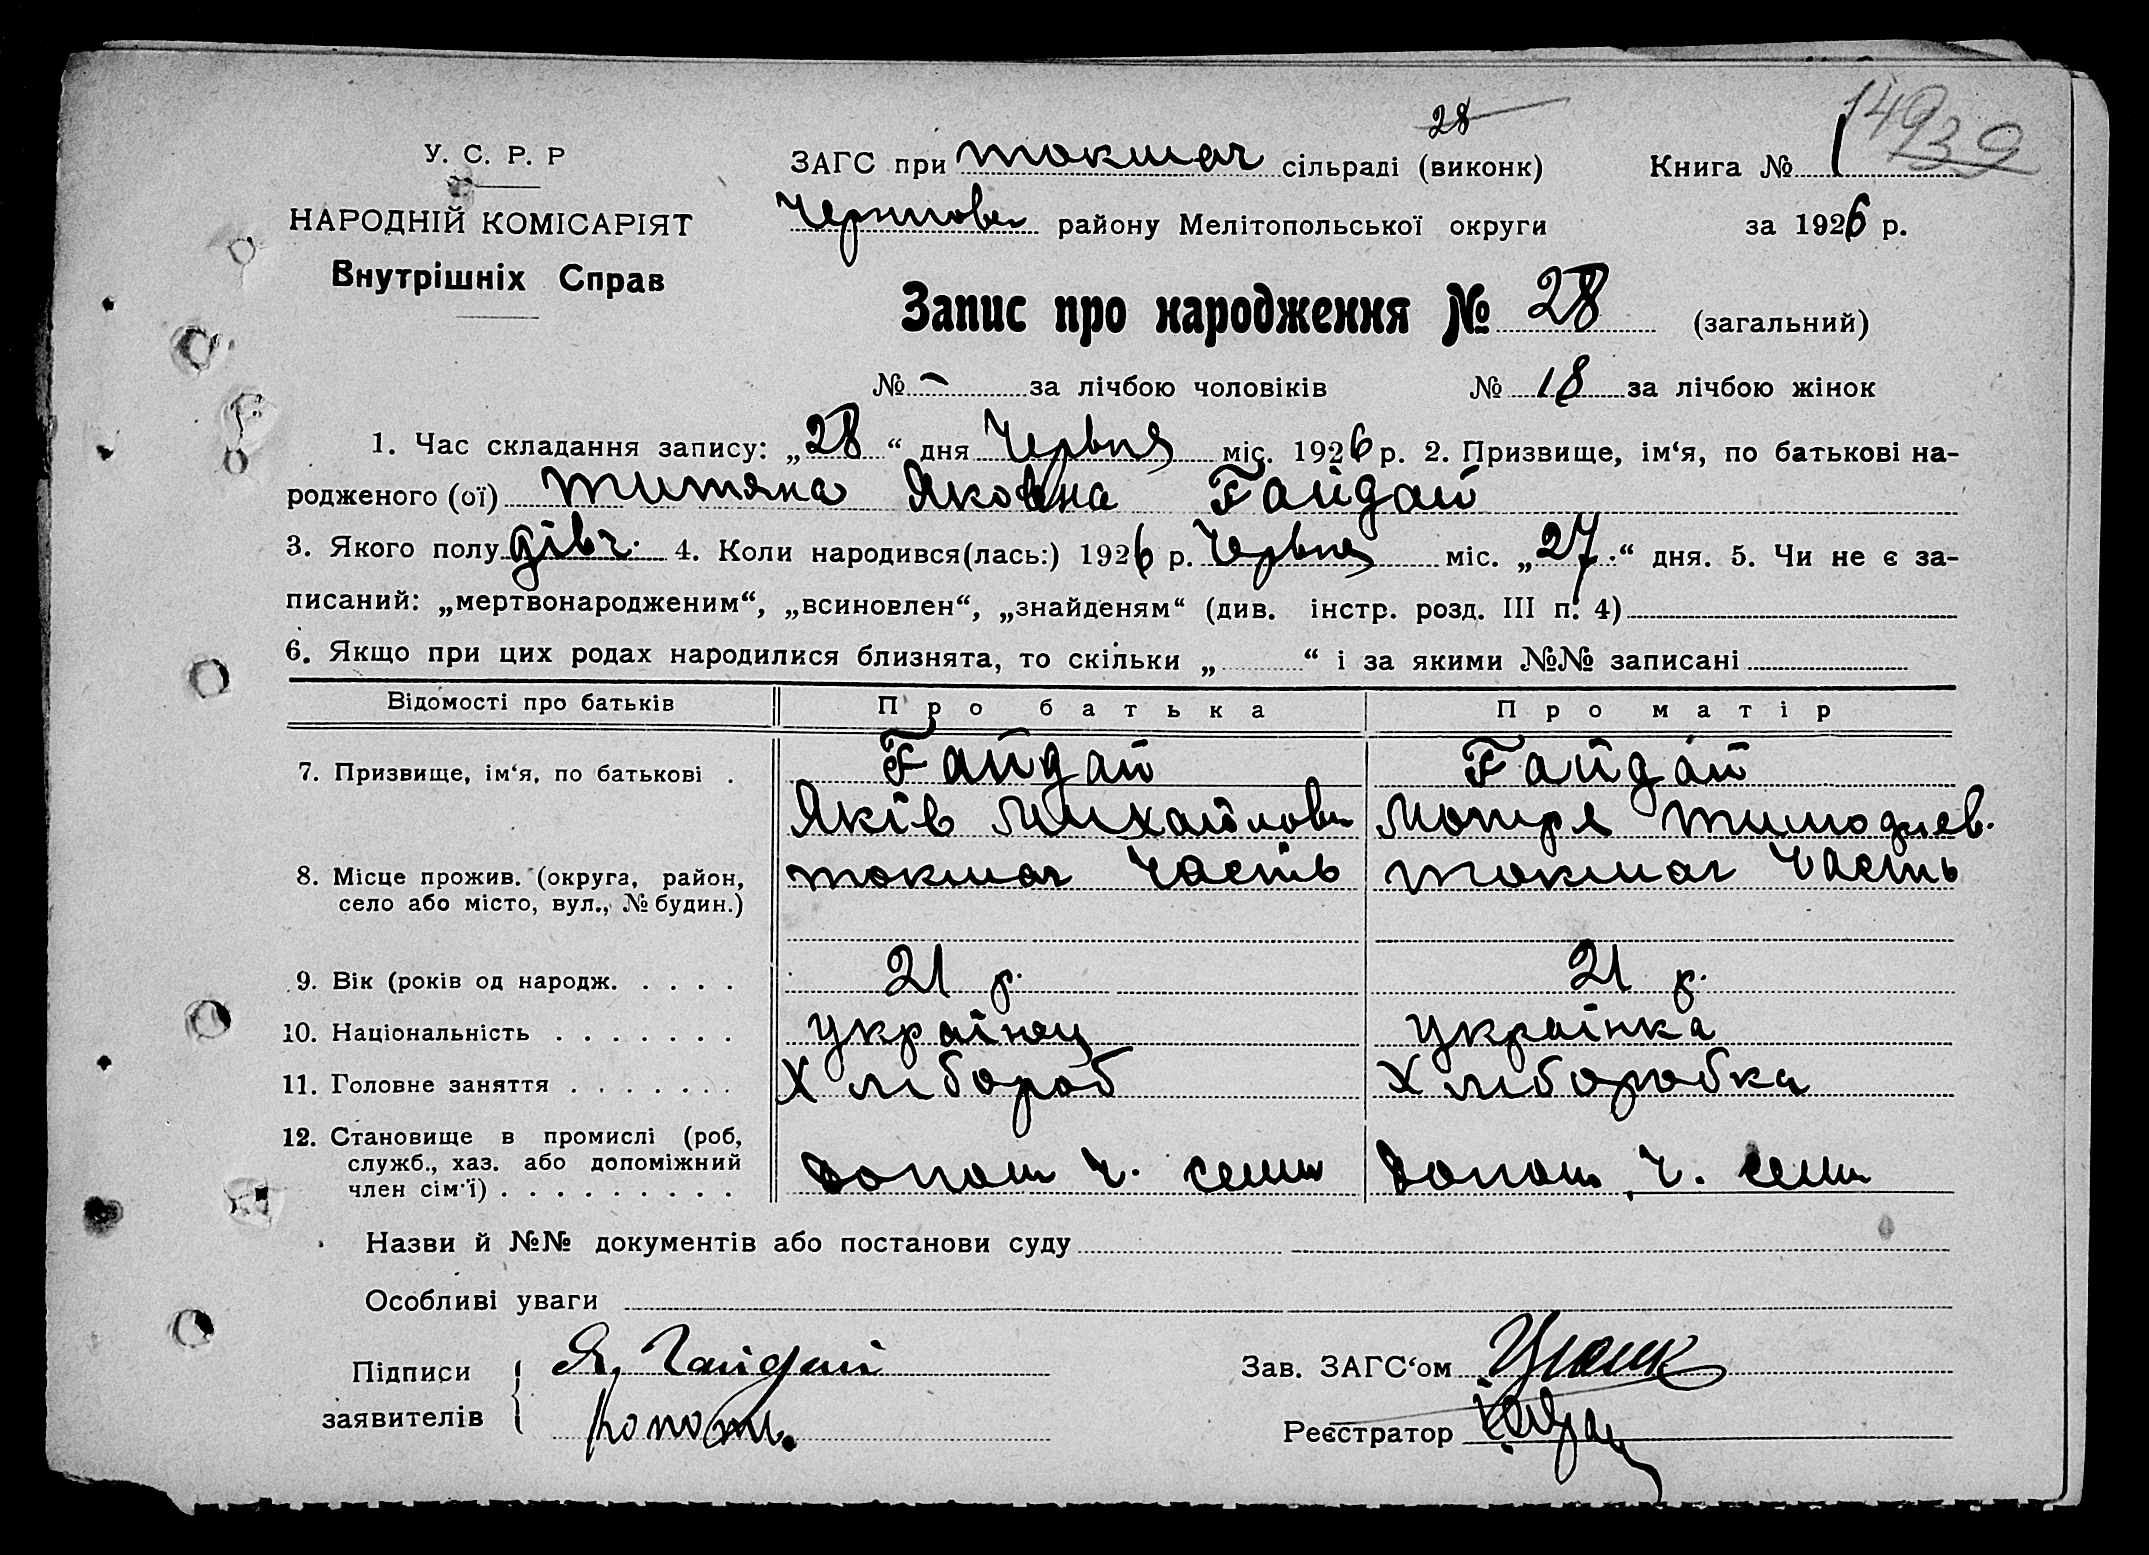 149
39
28
У. С. Р. Р
ЗАГС при Токмач сільраді (виконк) Книга № 1
НАРОДНІЙ КОМІСАРІЯТ
району Мелітопольської округи за 1926 р.
Внутрішніх Справ
Запис про народження № 28 (загальний)
№ – за лічбою чоловіків № 18 за лічбою жінок
1. Час складання запису: „28“ дня Червня міс. 1926 р. 2. Призвище, ім‘я, по батькові на-
родженого (ої) Титяна Яковна Гайдай
3. Якого полу дівч. 4. Коли народився(лась:) 1926 р. Червня міс. „27“ дня. 5. Чи не є за-
писаний: „мертвонародженим“, „всиновлен“, „знайденям“ (див. інстр. розд. III п. 4)
6. Якщо при цих родах народилися близнята, то скільки „ “ і за якими №№ записані
Відомості про батьків Про батька Про матір
7. Призвище, ім‘я, по батькові . Гайдай Гайдай
Яків Михайлови Мотря
8. Місце прожив. (округа, район, Токмач Часть Токмач Часть
село або місто, вул., № будин.)
9. Вік (років од народж. . . . . 21 р. 21 р.
10. Національність . . . . . . . українец украінка
11. Головне заняття . . . . . . . Хлібороб Хліборобка
12. Становище в промислі (роб,
служб., хаз. або допоміжний допом ч. семи допом ч. семи
член сім‘ї) . . . . . . . . .
Назви й №№ документів або постанови суду
Особливі уваги
Підписи Я. Гайдай Зав. ЗАГС‘ом
заявителів Реєстратор